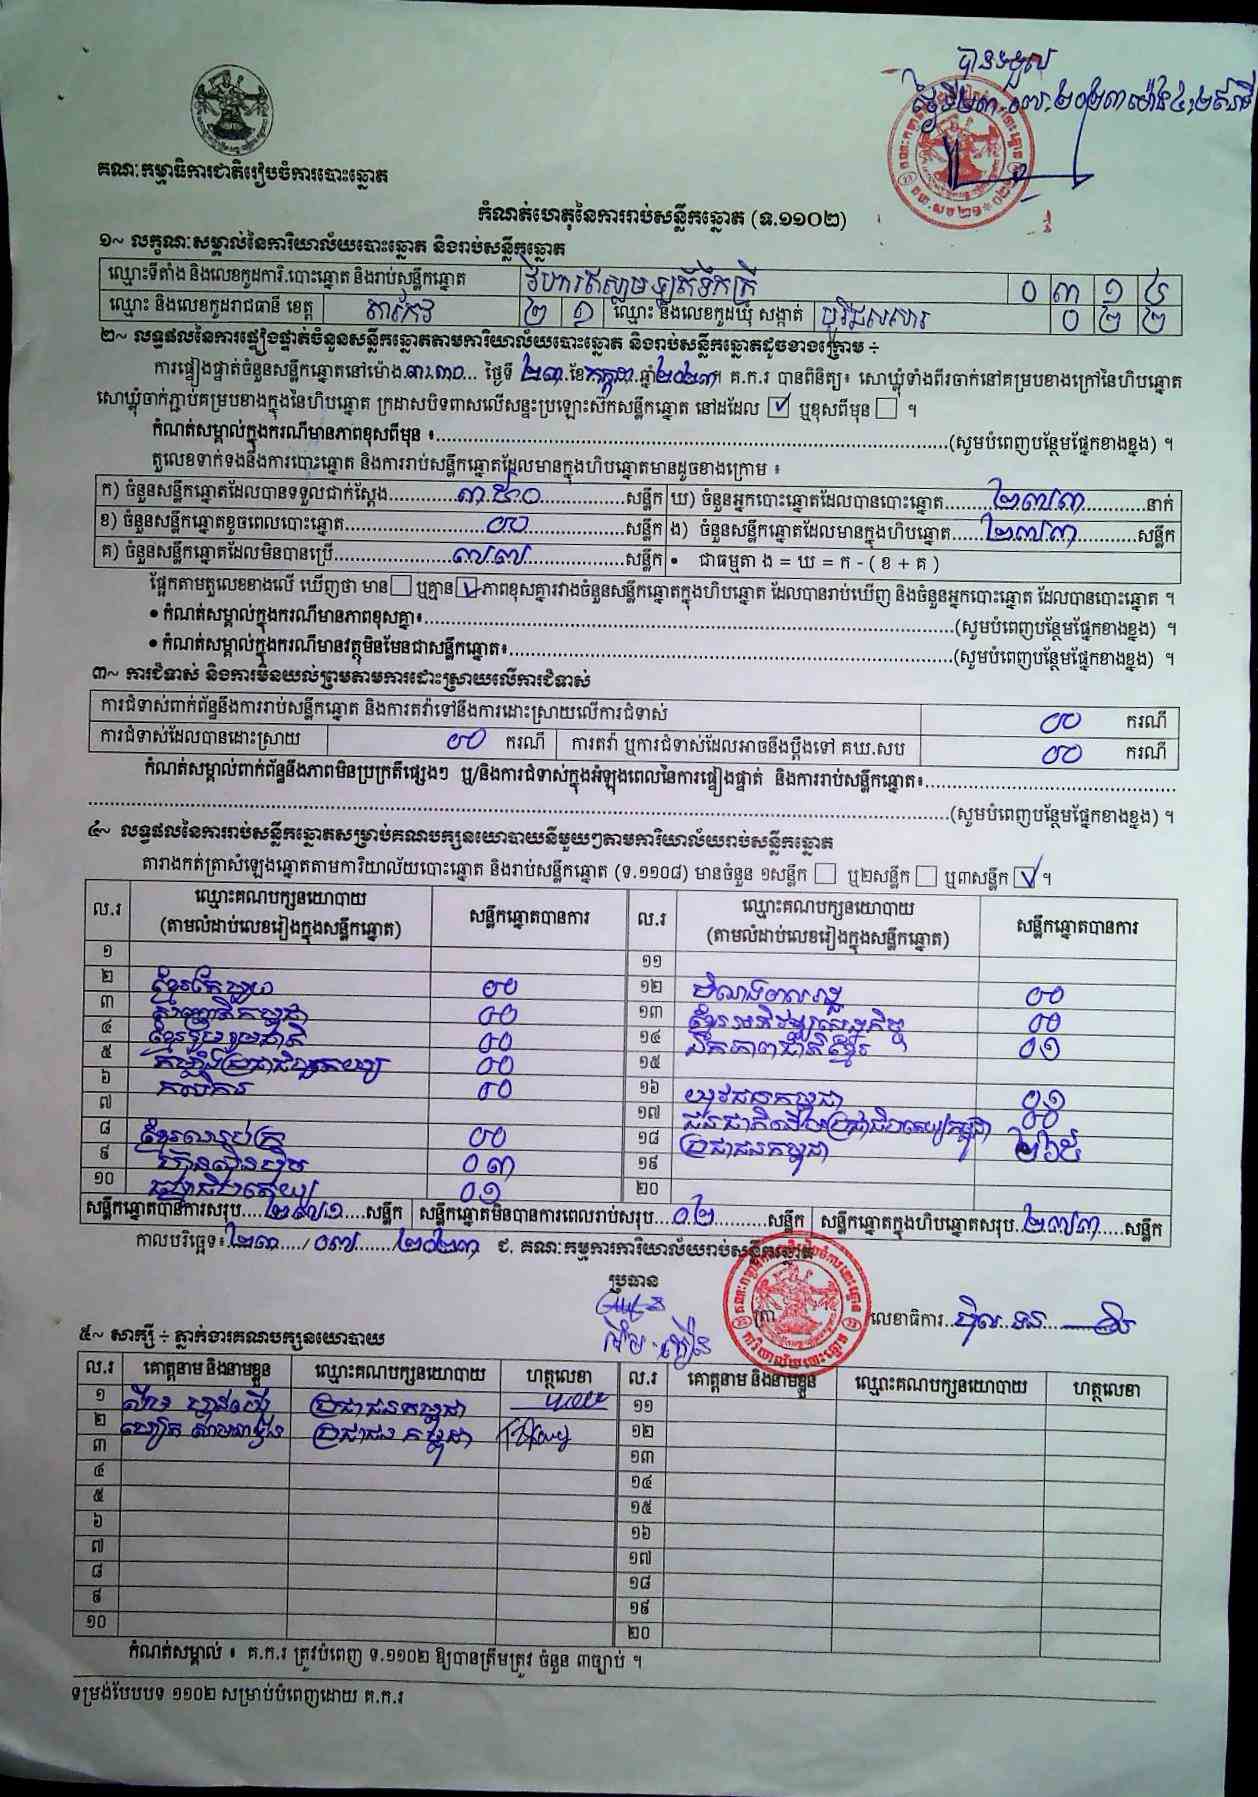 បានទទួល
ថ្ងៃទី២៣.០៧.២០២៣ ម៉ោង
គណៈកម្មាធិការជាតិរៀបចំការបោះឆ្នោត
កំណត់ហេតុនៃការរាប់សន្លឹកឆ្នោត (ទ.១១០២)
១~ លក្ខណៈសម្គាល់នៃការិយាល័យបោះឆ្នោត និងរាប់សន្លឹកឆ្នោត
ឈ្មោះទីតាំង និងលេខកូដការិ.បោះឆ្នោត និងរាប់សន្លឹកឆ្នោត វិហារឥស្លាម ០ ៣ ១ ៤
ឈ្មោះ និងលេខកូដរាជធានី ខេត្ត តាកែវ ២ ១ ឈ្មោះ និងលេខកូដឃុំ សង្កាត់ បូរីជលសារ ០ ២ ២
២~ លទ្ធផលនៃការផ្ទៀងផ្ទាត់ចំនួនសន្លឹកឆ្នោតតាមការិយាល័យបោះឆ្នោត និងរាប់សន្លឹកឆ្នោតដូចខាងក្រោម ÷
ការផ្ទៀងផ្ទាត់ចំនួនសន្លឹកឆ្នោតនៅម៉ោង.៣:៣០... ថ្ងៃទី ២៣.ខែកក្កដា.ឆ្នាំ២០២៣។ គ.ក.រ បានពិនិត្យ៖ សោឃ្លុំទាំងពីរចាក់នៅគម្របខាងក្រៅនៃហិបឆ្នោត
សោឃ្លុំចាក់ភ្ជាប់គម្របខាងក្នុងនៃហិបឆ្នោត ក្រដាសបិទពាសលើសន្ទះប្រឡោះស៊កសន្លឹកឆ្នោត នៅដដែល ☑ ឬខុសពីមុន ☐ ។
កំណត់សម្គាល់ក្នុងករណីមានភាពខុសពីមុន ៖.....(សូមបំពេញបន្ថែមផ្នែកខាងខ្នង) ។
តួលេខទាក់ទងនឹងការបោះឆ្នោត និងការរាប់សន្លឹកឆ្នោតដែលមានក្នុងហិបឆ្នោតមានដូចខាងក្រោម ៖
ក) ចំនួនសន្លឹកឆ្នោតដែលបានទទួលជាក់ស្តែង.....៣៥០.....សន្លឹក ឃ) ចំនួនអ្នកបោះឆ្នោតដែលបានបោះឆ្នោត.....២៧៣.....នាក់
ខ) ចំនួនសន្លឹកឆ្នោតខូចពេលបោះឆ្នោត.....00.....សន្លឹក ង) ចំនួនសន្លឹកឆ្នោតដែលមានក្នុងហិបឆ្នោត.....២៧៣.....សន្លឹក
គ) ចំនួនសន្លឹកឆ្នោតដែលមិនបានប្រើ.....៧៧.....សន្លឹក • ជាធម្មតា ង = ឃ = ក - ( ខ + គ )
ផ្អែកតាមតួលេខខាងលើ ឃើញថា មាន ☐ ឬគ្មាន ☑ ភាពខុសគ្នារវាងចំនួនសន្លឹកឆ្នោតក្នុងហិបឆ្នោត ដែលបានរាប់ឃើញ និងចំនួនអ្នកបោះឆ្នោត ដែលបានបោះឆ្នោត ។
• កំណត់សម្គាល់ក្នុងករណីមានភាពខុសគ្នា៖.....(សូមបំពេញបន្ថែមផ្នែកខាងខ្នង) ។
• កំណត់សម្គាល់ក្នុងករណីមានវត្ថុមិនមែនជាសន្លឹកឆ្នោត៖.....(សូមបំពេញបន្ថែមផ្នែកខាងខ្នង) ។
៣~ ការជំទាស់ និងការមិនយល់ព្រមតាមការដោះស្រាយលើការជំទាស់
ការជំទាស់ពាក់ព័ន្ធនឹងការរាប់សន្លឹកឆ្នោត និងការតវ៉ាទៅនឹងការដោះស្រាយលើការជំទាស់ 00 ករណី
ការជំទាស់ដែលបានដោះស្រាយ 00 ករណី ការតវ៉ា ឬការជំទាស់ដែលអាចនឹងប្តឹងទៅ គឃ.សប 00 ករណី
កំណត់សម្គាល់ពាក់ព័ន្ធនឹងភាពមិនប្រក្រតីផ្សេងៗ ឬ/និងការជំទាស់ក្នុងអំឡុងពេលនៃការផ្ទៀងផ្ទាត់ និងការរាប់សន្លឹកឆ្នោត៖.....
.....(សូមបំពេញបន្ថែមផ្នែកខាងខ្នង) ។
៤~ លទ្ធផលនៃការរាប់សន្លឹកឆ្នោតសម្រាប់គណបក្សនយោបាយនីមួយៗតាមការិយាល័យរាប់សន្លឹកឆ្នោត
តារាងកត់ត្រាសំឡេងឆ្នោតតាមការិយាល័យបោះឆ្នោត និងរាប់សន្លឹកឆ្នោត (ទ.១១០៨) មានចំនួន ១សន្លឹក ☐ ឬ២សន្លឹក ☐ ឬ៣សន្លឹក ☑ ។
ល.រ ឈ្មោះគណបក្សនយោបាយ (តាមលំដាប់លេខរៀងក្នុងសន្លឹកឆ្នោត) សន្លឹកឆ្នោតបានការ ល.រ ឈ្មោះគណបក្សនយោបាយ (តាមលំដាប់លេខរៀងក្នុងសន្លឹកឆ្នោត) សន្លឹកឆ្នោតបានការ
១ ១១
២ 00 ១២ 00
៣ 00 ១៣ ខ្មែរអភិវឌ្ឍន៍សេដ្ឋកិច្ច 00
៤ ខ្មែររួបរួមជាតិ 00 ១៤ ឯកភាពជាតិខ្មែរ 0១
៥ កម្លាំងប្រជាធិបតេយ្យ 00 ១៥
៦ កសិករ 00 ១៦ យុវជនកម្ពុជា 0១
៧ ១៧ ជនជាតិដើមប្រជាធិបតេយ្យកម្ពុជា 00
៨ 00 ១៨ ប្រជាជនកម្ពុជា ២៦៥
៩ ហ៊្វុនស៊ិនប៉ិច 0៣ ១៩
១០ 0១ ២០
សន្លឹកឆ្នោតបានការសរុប....២៧១....សន្លឹក សន្លឹកឆ្នោតមិនបានការពេលរាប់សរុប...0២....សន្លឹក សន្លឹកឆ្នោតក្នុងហិបឆ្នោតសរុប..២៧៣....សន្លឹក
កាលបរិច្ឆេទ៖.២៣..../.០៧..../.២០២៣ ជ. គណៈកម្មការការិយាល័យរាប់សន្លឹកឆ្នោត
ប្រធាន
ត្រា
លេខាធិការ
៥~ សាក្សី ÷ ភ្នាក់ងារគណបក្សនយោបាយ
ល.រ គោត្តនាម និងនាមខ្លួន ឈ្មោះគណបក្សនយោបាយ ហត្ថលេខា ល.រ គោត្តនាម និងនាមខ្លួន ឈ្មោះគណបក្សនយោបាយ ហត្ថលេខា
១ ប្រជាជនកម្ពុជា ១១
២ ប្រជាជនកម្ពុជា ១២
៣ ១៣
៤ ១៤
៥ ១៥
៦ ១៦
៧ ១៧
៨ ១៨
៩ ១៩
១០ ២០
កំណត់សម្គាល់ ៖ គ.ក.រ ត្រូវបំពេញ ទ.១១០២ ឱ្យបានត្រឹមត្រូវ ចំនួន ៣ច្បាប់ ។
ទម្រង់បែបបទ ១១០២ សម្រាប់បំពេញដោយ គ.ក.រ